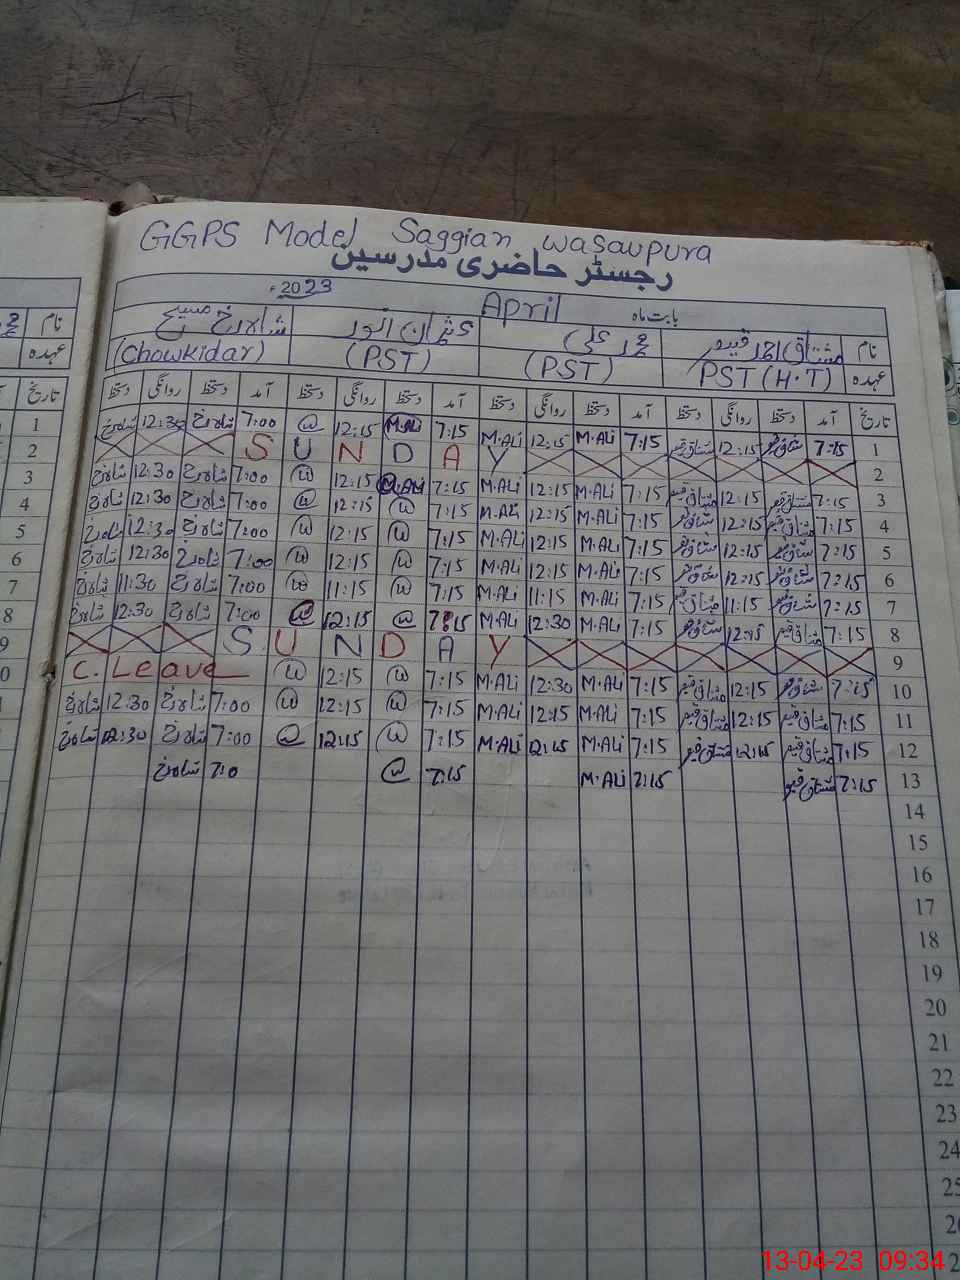 GGPS Model Saggian wasavpura
رجسٹر حاضری مدرسین
بابت ماہ April 2023ء
نام مشتاق احمد قیصر محمد علی عثمان انور شاہ رخ مسیح
عہدہ PST (H.T) (PST) (PST) (Chowkidar)
تاریخ آمد دستخط روانگی دستخط آمد دستخط روانگی دستخط آمد دستخط روانگی دستخط آمد دستخط روانگی دستخط
1 7:15 12:15 7:15 M.ALi 12:15 M.ALi 7:15 M.ALi 12:15 @ 7:00 شاہ رخ 12:30 شاہ رخ
2 S U N D A Y
3 7:15 12:15 7:15 M.ALi 12:15 M.ALi 7:15 M.ALi 12:15 7:00 شاہ رخ 12:30 شاہ رخ
4 7:15 12:15 7:15 M.ALi 12:15 M.ALi 7:15 12:15 7:00 شاہ رخ 12:30 شاہ رخ
5 7:15 12:15 7:15 M.ALi 12:15 M.ALi 7:15 12:15 7:00 شاہ رخ 12:30 شاہ رخ
6 7:15 12:15 7:15 M.ALi 12:15 M.ALi 7:15 12:15 7:00 شاہ رخ 12:30 شاہ رخ
7 7:15 11:15 7:15 M.ALi 11:15 M.ALi 7:15 11:15 7:00 شاہ رخ 11:30 شاہ رخ
8 7:15 12:15 7:15 M.ALi 12:30 M.ALi 7:15 @ 12:15 @ 7:00 شاہ رخ 12:30 شاہ رخ
9 S U N D A Y
10 7:15 12:15 7:15 M.ALi 12:30 M.ALi 7:15 12:15 C. Leave
11 7:15 12:15 7:15 M.ALi 12:15 M.ALi 7:15 12:15 7:00 شاہ رخ 12:30 شاہ رخ
12 7:15 12:15 7:15 M.ALi 12:15 M.ALi 7:15 12:15 @ 7:00 شاہ رخ 12:30 شاہ رخ
13 7:15 7:15 M.ALi 7:15 @ 7:0 شاہ رخ
14
15
16
17
18
19
20
21
22
23
24
25
13-04-23 09:34